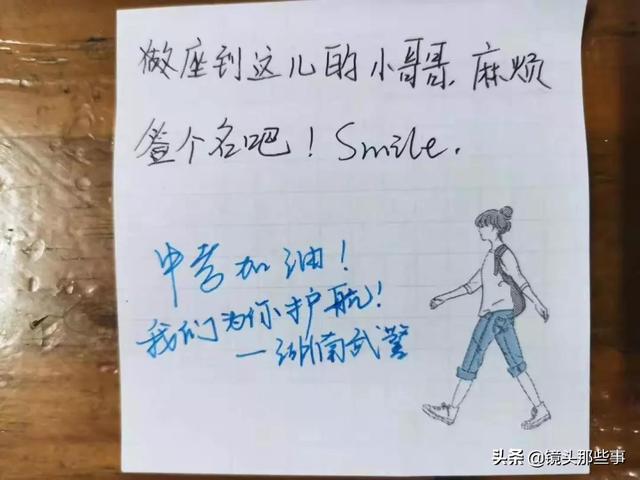 做座到这儿的小哥哥麻烦
签个名吧！Smile.
中考加油！
我们为你护航！
—湖南武警
头条@镜头那些事